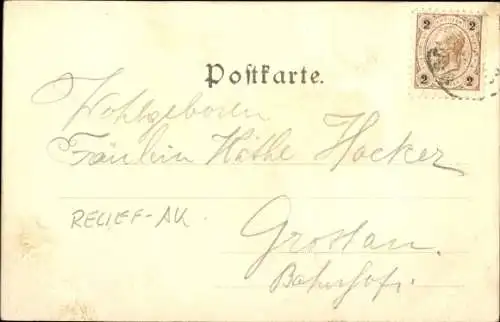 2 2
Postkarte.
Wohlgeboren
Fräulein Käthe Hocker
RELIEF-AK.
Grottau.
Bahnhof.